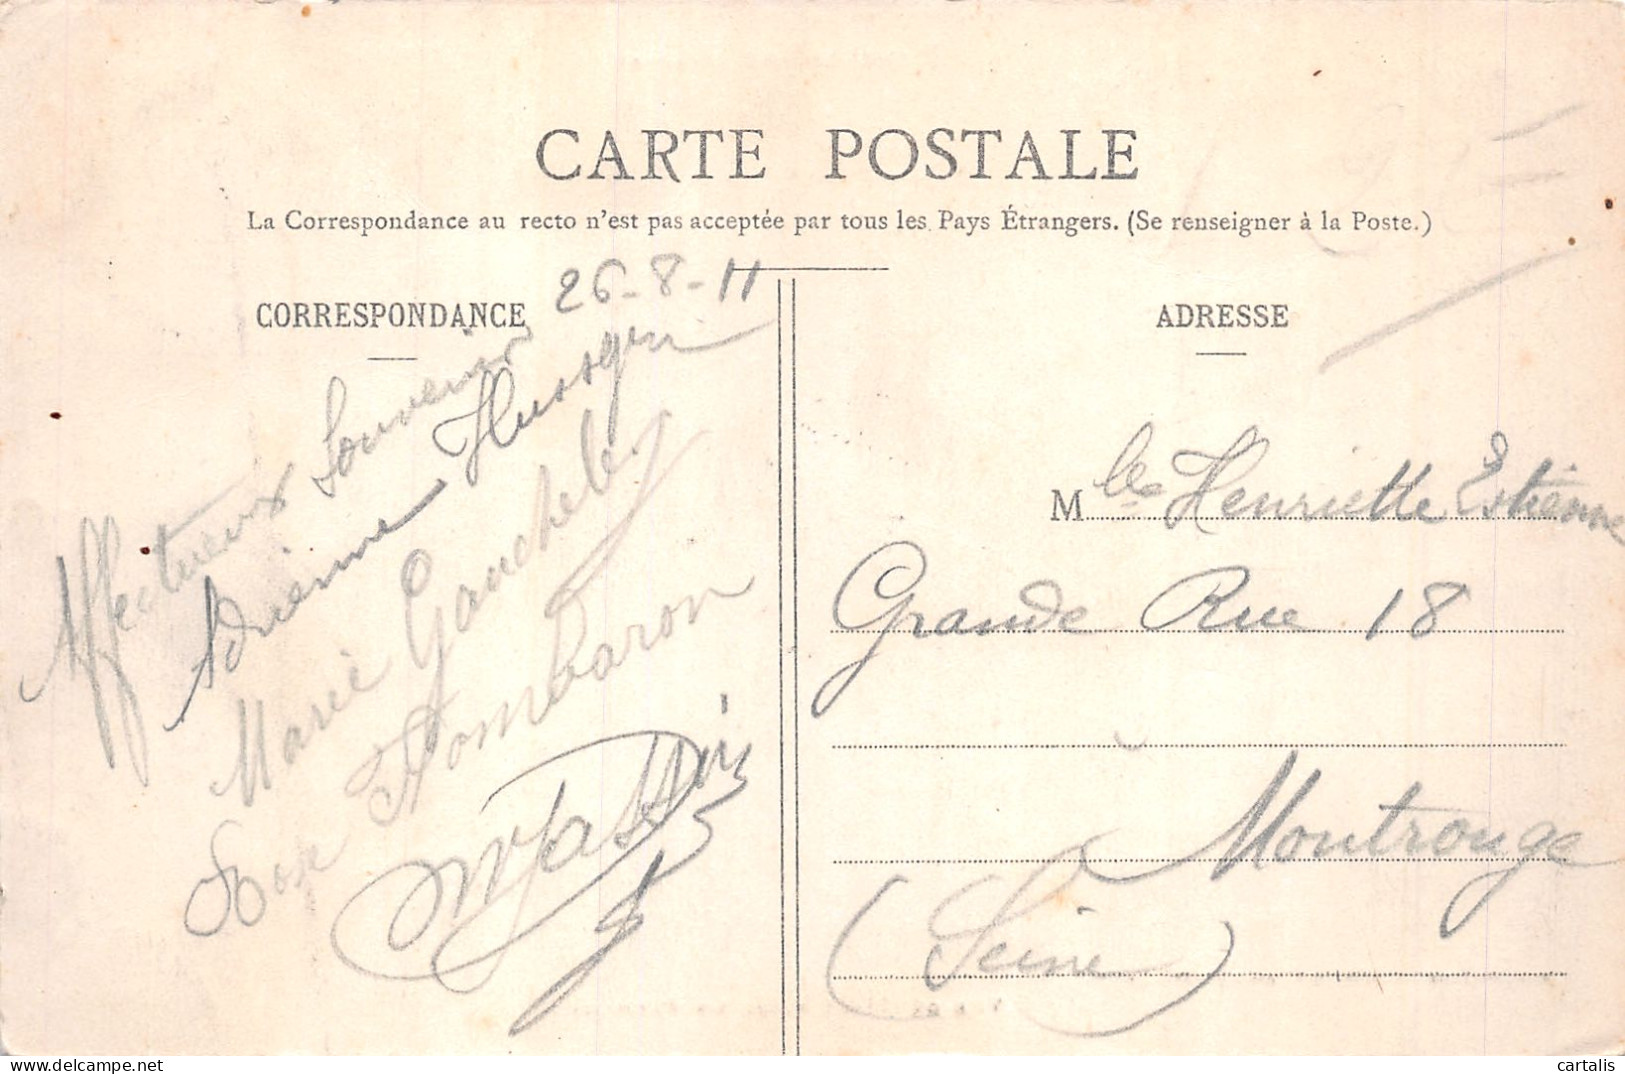 CARTE POSTALE
La Correspondance au recto n'est pas acceptée par tous les Pays Étrangers. (Se renseigner à la Poste.)
CORRESPONDANCE
26-8-11
Affectueux Souvenir
Adrienne
Marie
ADRESSE
Mlle Henriette Estienne
Grande Rue 18
Montrouge
(Seine)
cartalis